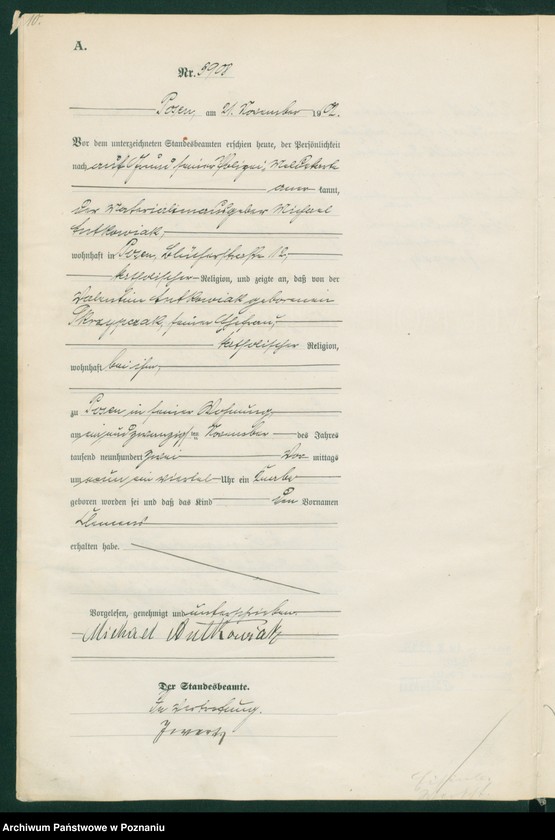 10.
A.
Nr. 5908
Posen, am 21. November 1902.
Vor dem unterzeichneten Standesbeamten erschien heute, der Persönlichkeit
nach auf Grund seiner Polizei, Meldekarte
aner kannt,
der Materialienausgeber Michael
Antkowiak,
wohnhaft in Posen, Blücherstraße 12,
katholischer Religion, und zeigte an, daß von der
Valentin Antkowiak geborenen
Skrzypczak, seiner Ehefrau,
katholischer Religion,
wohnhaft bei ihm,
zu Posen in seiner Wohnung,
am einundzwanzigsten November des Jahres
tausend neunhundert zwei Vor mittags
um neun ein viertel Uhr ein Knabe
geboren worden sei und daß das Kind den Vornamen
Clemens
erhalten habe.
Vorgelesen, genehmigt und unterschrieben.
Michael Antkowiak
Der Standesbeamte.
In Vertretung.
Archiwum Państwowe w Poznaniu